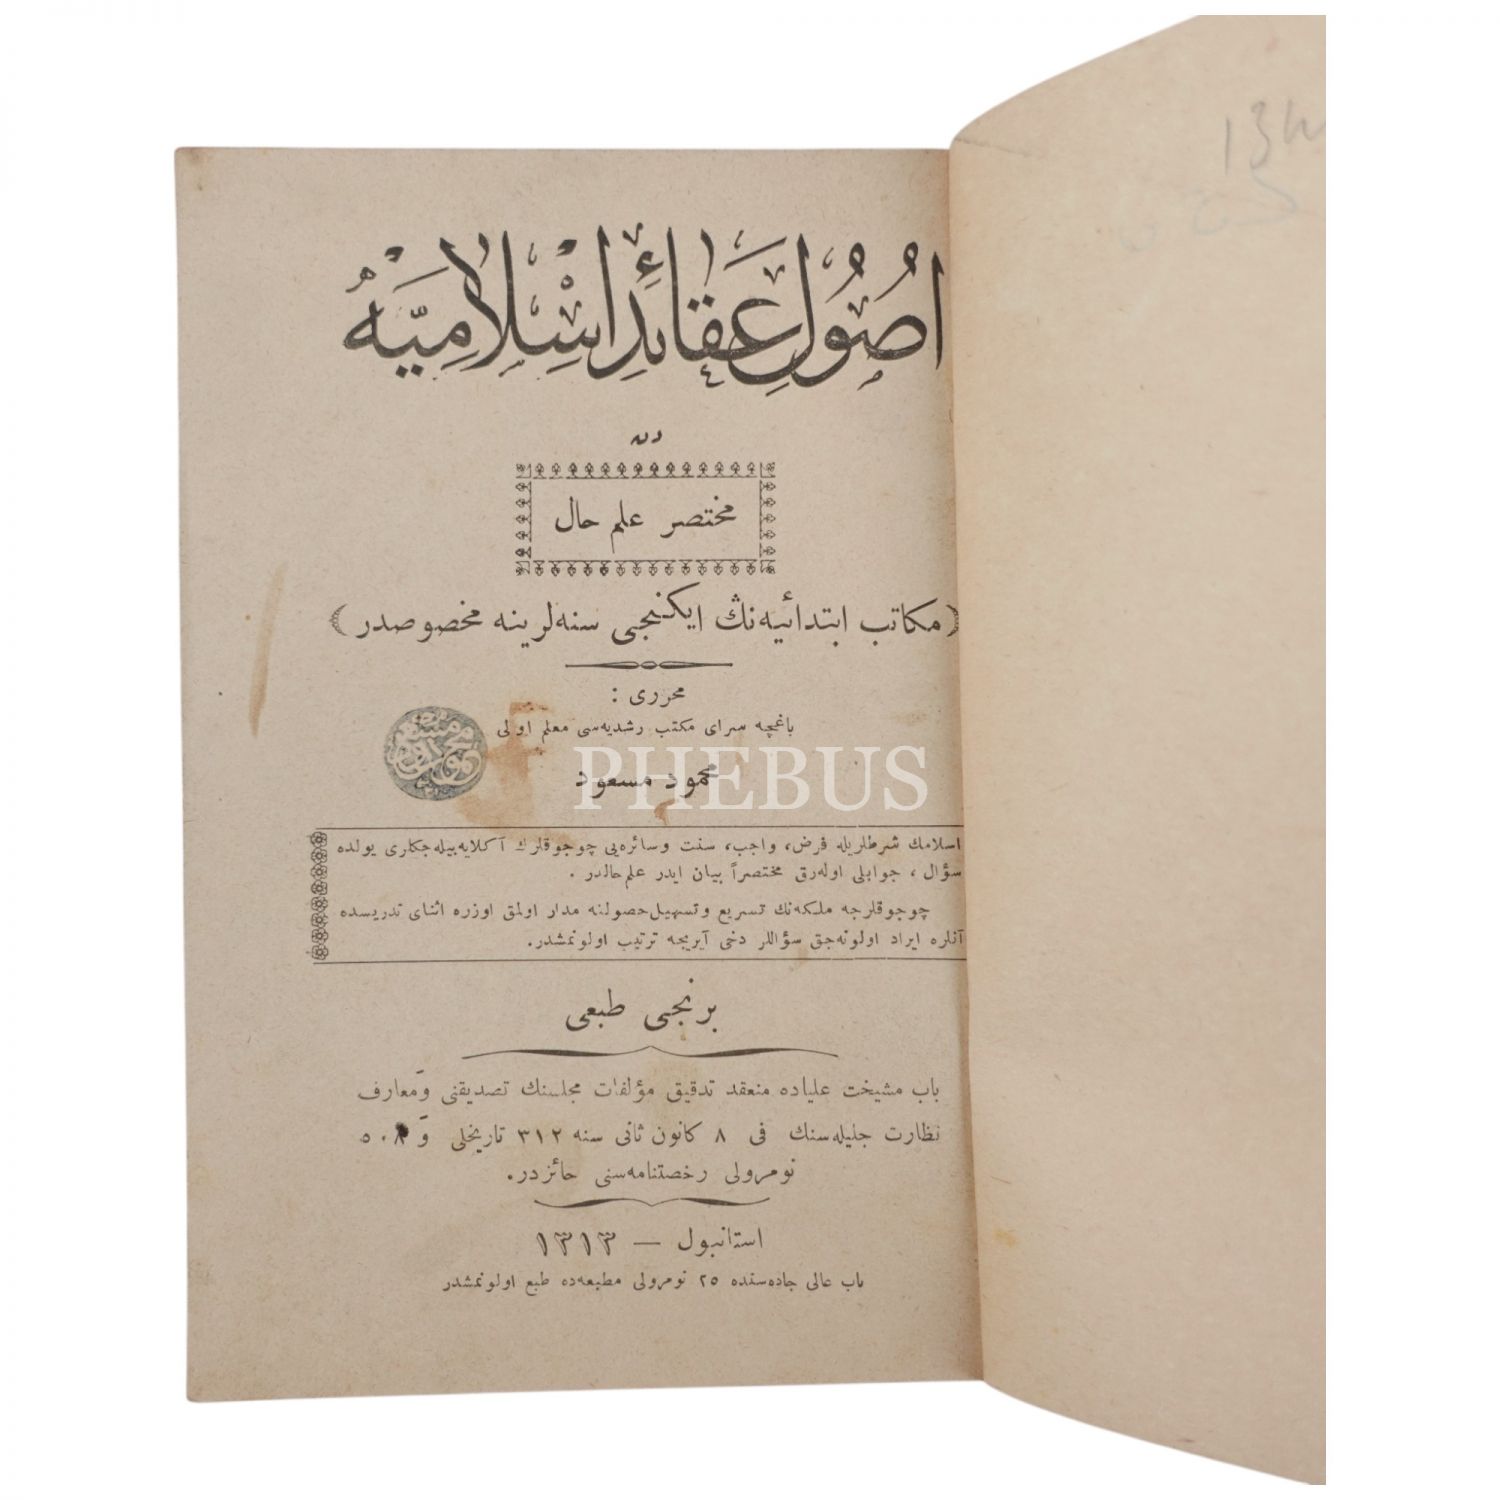 اُصُولِ عَقَائِدِ اِسْلَامِيَّهٔ
دن
مختصر علم حال
(مكاتب ابتدائيه‌نڭ ايكنجى سنه‌لرينه مخصوصدر)
محررى :
باغچه سراى مكتب رشديه‌سى معلم اولى
محمود مسعود
PHEBUS
اسلامك شرطلريله فرض، واجب، سنت وسائره‌يى چوجوقلرك آكلايه‌بيله‌جكلرى يولده
سؤال ، جوابلى اوله‌رق مختصراً بيان ايدر علم‌حالدر .
چوجوقلرجه ملكه‌نك تسريع وتسهيل حصولنه مدار اولمق اوزره اثناى تدريسده
آنلره ايراد اولونه‌جق سؤاللر دخى آيريجه ترتيب اولونمشدر.
برنجى طبعى
باب مشيخت علياده منعقد تدقيق مؤلفات مجلسنك تصديقنى و معارف
نظارت جليله‌سنك فى ٨ كانون ثانى سنه ٣١٢ تاريخلى و ٥٠٨
نومرولى رخصتنامه‌سنى حائزدر.
استانبول — ١٣١٣
باب عالى جاده‌سنده ٢٥ نومرولى مطبعه‌ده طبع اولونمشدر